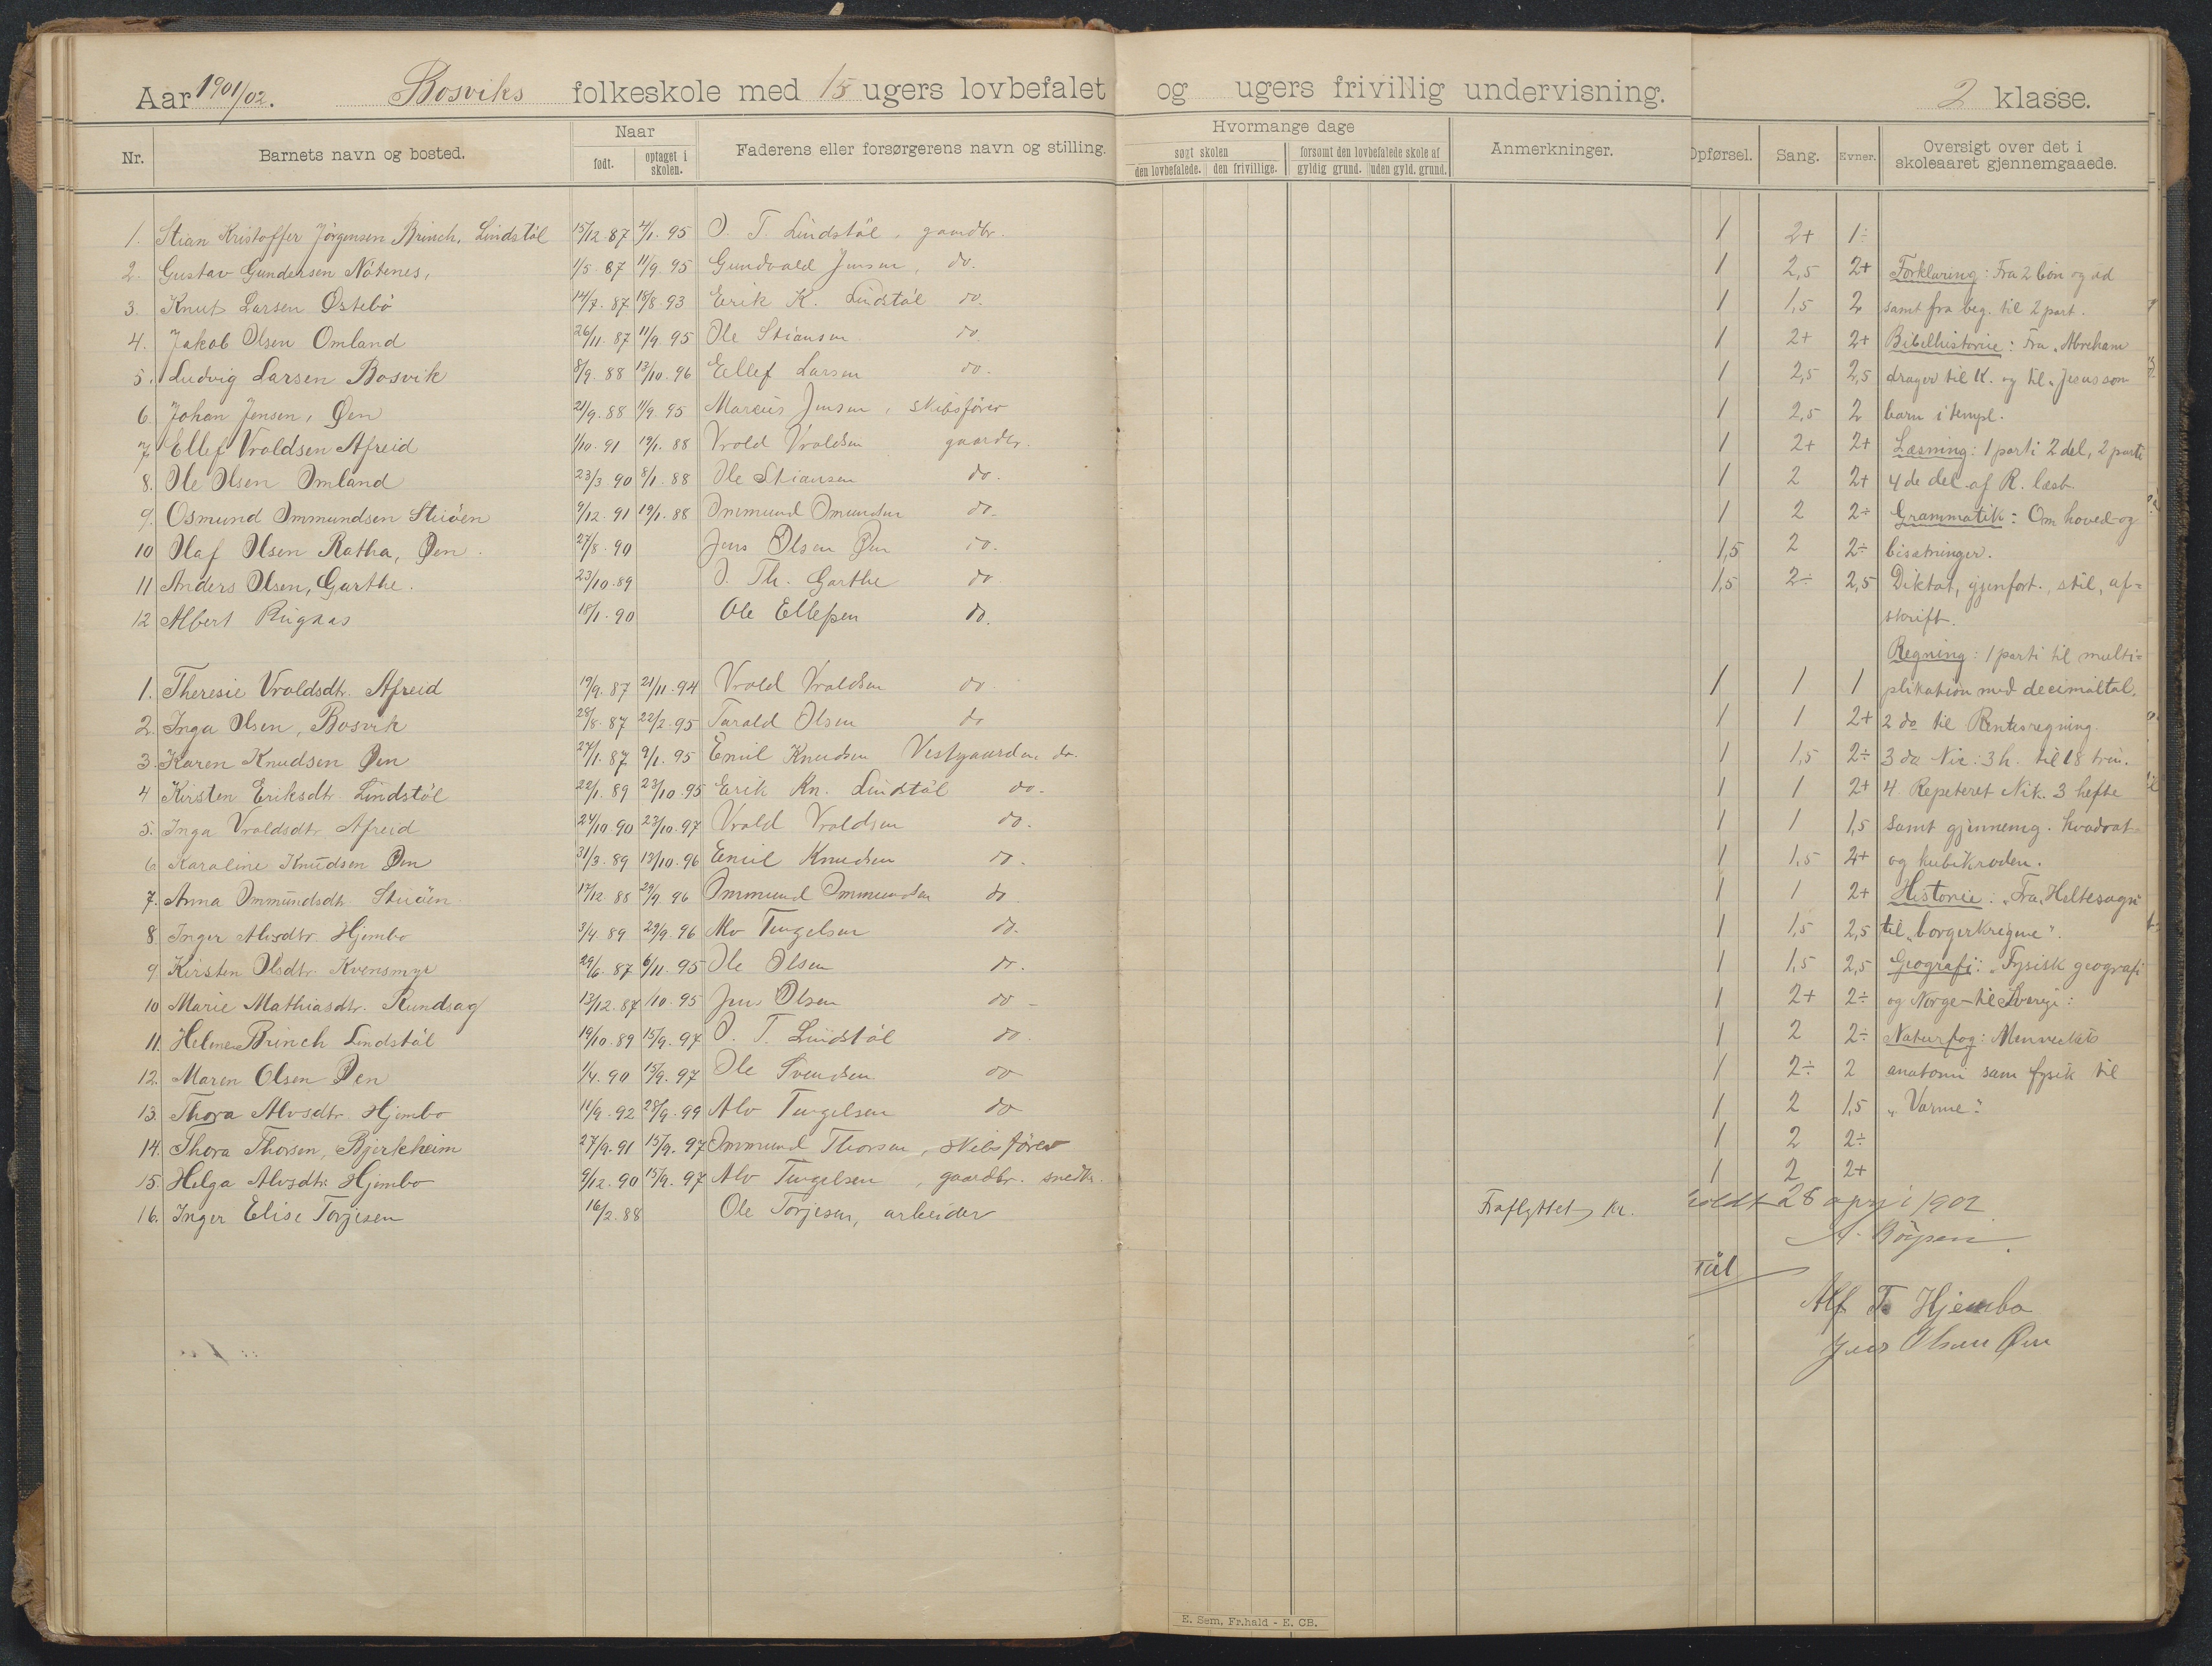 Aar 1901/02. Bosviks folkeskole med 15 ugers lovbefalet og ugers frivillig undervisning. 2 klasse.
Nr. Barnets navn og bosted. Naar født. optaget i skolen. Faderens eller forsørgerens navn og stilling. Hvormange dage søgt skolen den lovbefalede. den frivillige. forsømt den lovbefalede skole af gyldig grund. uden gyld. grund. Anmerkninger. Opførsel. Sang. Evner. Oversigt over det i skoleaaret gjennemgaaede.
1. Stian Kristoffer Jörgensen Brinch, Lindstöl 15/12 87 4/1. 95 O. T. Lindstöl, gaardbr. 1 2+ 1÷
2. Gustav Gundersen Nötenes, 1/5 87 11/9. 95 Gundvald Jensen, do. 1 2,5 2+ Forklaring: Fra 2 bön og ud
3. Knut Larsen Östebö 14/7. 87 18/8. 93 Erik K. Lindstöl do. 1 1,5 2 samt fra beg. til 2 part.
4. Jakob Olsen Omland 26/11. 87 11/9. 95 Ole Stiansen do 1 2+ 2+ Bibelhistorie: Fra "Abraham
5. Ludvig Larsen Bosvik 8/9. 88 13/10. 96 Ellef Larsen do. 1 2,5 2,5 drager til K. og til "Jesus som
6. Johan Jensen, Øen 21/9. 88 11/9. 95 Marcus Jensen, skibsförer 1 2,5 2 barn i templ.
7 Ellef Vraldsen Afreid 1/10. 91 19/1. 88 Vrald Vraldsen gaardbr. 1 2+ 2+ Læsning: 1 parti 2 del, 2 parti
8. Ole Olsen Omland 23/3 90 8/1. 88 Ole Stiansen do. 1 2 2+ 4de del af R. læst
9. Osmund Ommundsen Stiöen 9/12. 91 19/1. 88 Ommund Omundsen do. 1 2 2÷ Grammatik: Om hoved og
10 Olaf Olsen Ratha, Øen. 27/8. 90 Jens Olsen Øen do. 1,5 2 2÷ bisætninger.
11 Anders Olsen, Garthe. 23/10. 89 O. Th. Garthe do 1,5 2÷ 2,5 Diktat, gjenfort., stil, af=
12 Albert Rugaas 18/1. 90 Ole Ellefsen do. skrift.
Regning: 1 parti til multi=
1. Theresie Vraldsdtr. Afreid 19/9. 87 21/11. 94 Vrald Vraldsen do. 1 1 1 plikation med decimaltal.
2. Inga Olsen, Bosvik 28/8. 87 22/2. 95 Tarald Olsen do 1 1 2+ 2 do til Rentesregning.
3. Karen Knudsen Øen 27/1. 87 9/1. 95 Emil Knudsen Vestgaarden do. 1 1,5 2÷ 3 do Nic: 3 h. til 18 trin.
4 Kirsten Eriksdtr. Lindstöl 22/1. 89 23/10. 95 Erik Kn. Lindstöl do. 1 1 2+ 4 Repeteret Nik. 3 hefte
5. Inga Vraldsdtr. Afreid 24/10. 90 23/10. 97 Vrald Vraldsen do. 1 1 1,5 samt gjennemg. kvadrat-
6 Karoline Knudsen Øen 31/3. 89 13/10. 96 Emil Knudsen do. 1 1,5 2+ og kubikroden.
7. Anna Ommundsdtr. Stiöen 17/12 88 29/9 96 Ommund Ommundsen do 1 1 2+ Historie: "Fra "Heltesagn"
8. Inger Alvsdtr. Hjembo 3/4. 89 29/9. 96 Alv Tengelsen do. 1 1,5 2,5 til "borgerkrigene".
9 Kirsten Olsdtr. Kvensmyr 29/6. 87 6/11. 95 Ole Olsen do. 1 1,5 2,5 Geografi: "Fysisk geografi
10 Marie Mathiasdtr. Rundsag 13/12. 87 /10. 95 Jens Olsen do 1 2+ 2÷ og Norge - til Sverige:
11. Helene Brinch Lindstöl 19/10. 89 15/9. 97 O. T. Lindstöl do. 1 2 2÷ Naturfag: Menneskets
12. Maren Olsen Øen 1/4. 90 15/9. 97 Ole Svendsen do 1 2÷ 2 anatomi sam fysik til
13. Thora Alvsdtr. Hjembo 11/9. 92 28/9. 99 Alv Tengelsen do 1 2 1,5 "Varme".
14. Thora Thorsen, Bjerkheim 27/9. 91 15/9. 97 Ommund Thorsen, skibsförer 1 2 2÷
15. Helga Alvsdtr. Hjembo 9/12. 90 15/9. 97 Alv Tengelsen, gaardbr. snedkr. 1 2 2+
16. Inger Elise Torjesen 16/2. 88 Ole Torjesen, arbeider Fraflyttet, Kr. 28 april 1902
Alf T. Hjembo
Jens Olsen Øen
E. Sem, Fr.hald - E. CB.